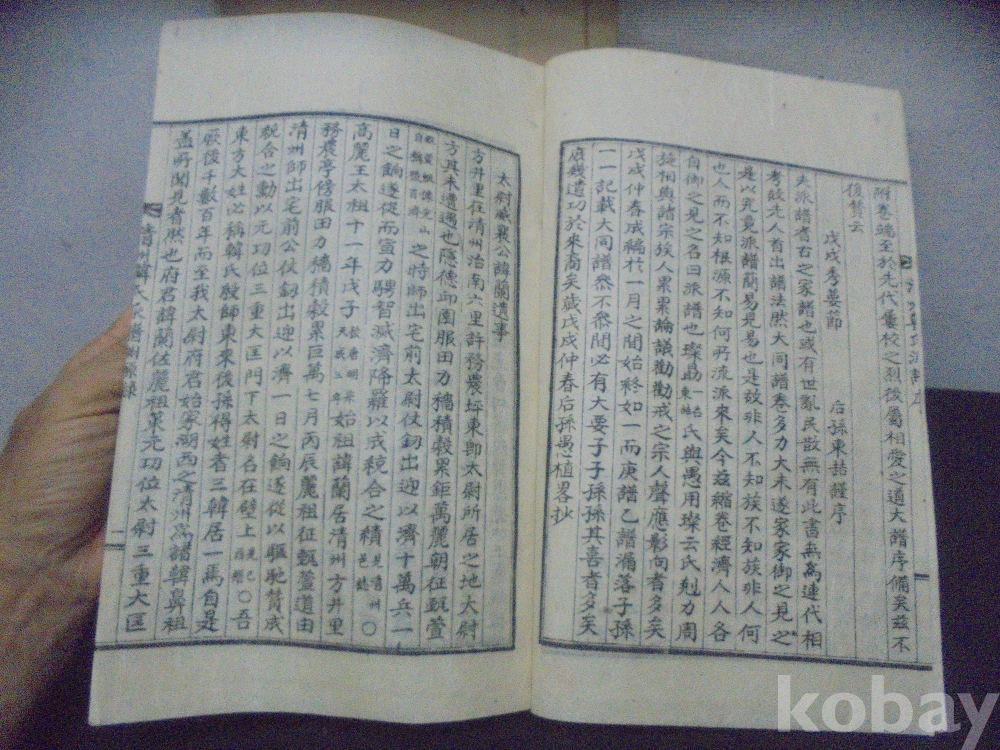 附卷端至於先代儤校之烈後屬相愛之道大譜序備矣玆不
復贅云
戊戌季蔞節 后孫東喆謹序
夫派譜者右之家譜也或有世亂民散無有此書無為連代相
考故先人首出譜法然大同譜卷多力大未遂家家御之見之
是以究竟派譜簡易見易也是故非人不知族不知族非人何
也人而不知根源不知何所流派來矣今玆縮卷經濟人人各
自御之見之名曰派譜也璨氏與愚用璨云氏剋力周
旋相與譜宗族人累累論議勸勸戒之宗人聲應影向者多矣
戊戌仲春成編於一月之間始終如一而庚譜乙譜漏落子孫
一一記載大同譜然不忝間必有大要子子孫孫其喜者多矣
庶幾遺功於來裔矣歲戊戌仲春后孫愚植畧抄
太尉威襄公諱蘭遺事
方井里在清州治南六里許務農坪東即太尉所居之地太尉
方其未遭遇也隱德邱園服田力穡積穀累鉅萬麗朝征甄萱
之時師出宅前太尉仗釰出迎以濟十萬兵一
日之餉遂從而宣力騁智滅濟降羅以成統合之積 見清州邑誌 〇
高麗王太祖十一年戊子 年始祖諱蘭居清州方井里
務農亭修服田力穡積穀累巨萬七月丙辰麗祖征甄萱道由
清州師出宅前公仗釰出迎以濟一日之餉遂從以驅馳贊成
統合之勳以元功位三重大匡門下太尉名在壁上 〇吾
東方大姓必稱韓氏殷師東來後孫得姓者三韓居一焉自是
厥後千數百年而至我太尉府君始家湖西之清州為譜韓鼻祖
盖所聞見者然也府君諱蘭佐麗祖策元功位太尉三重大匡
清州韓氏
一
kobay